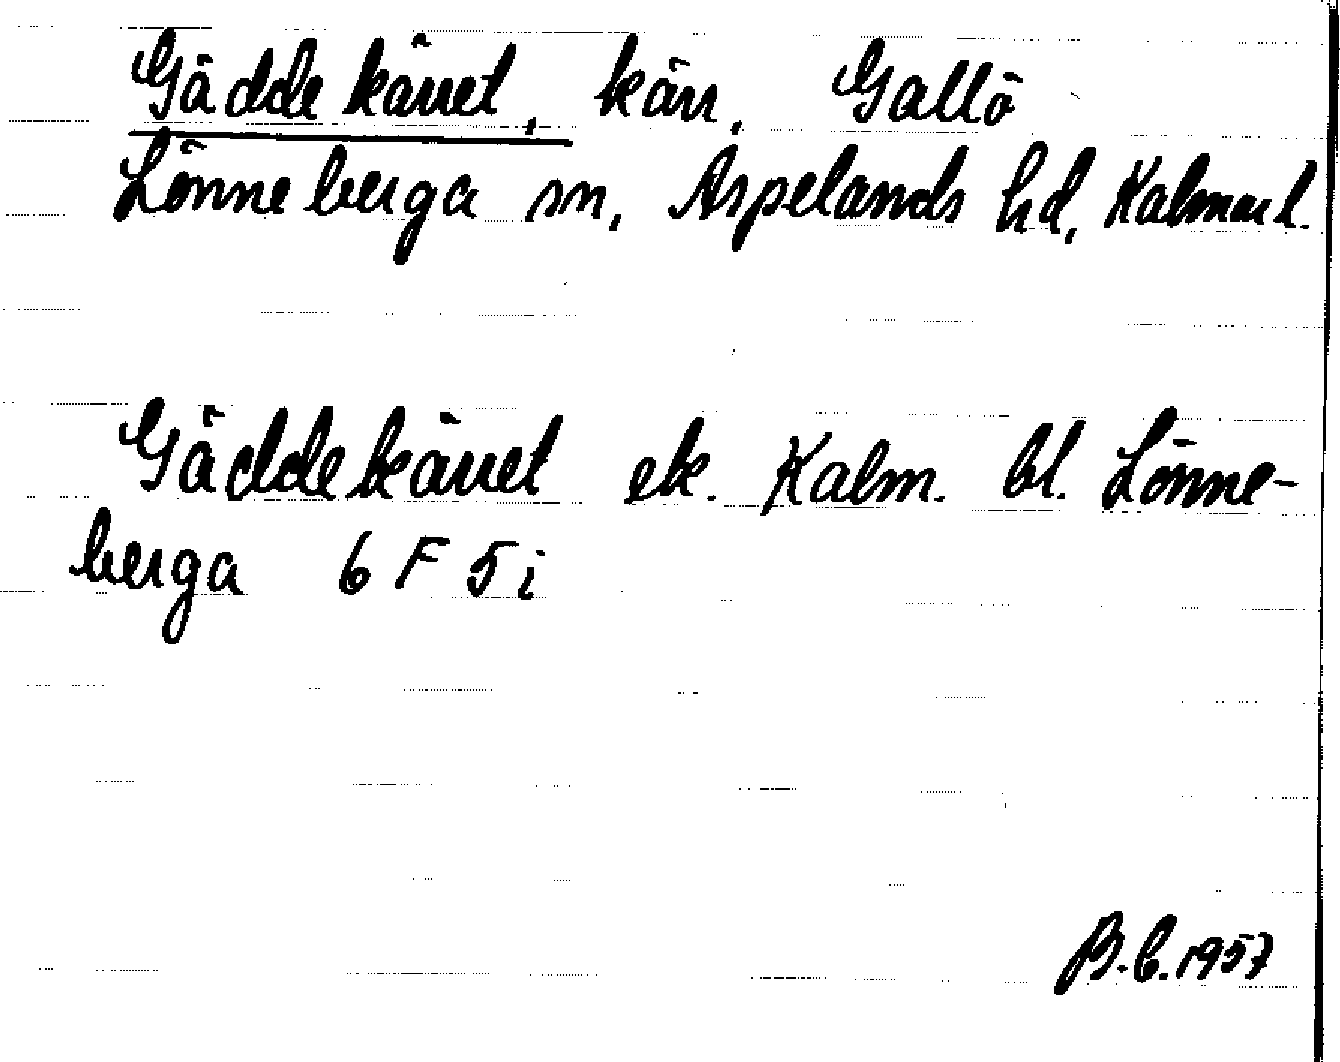 Gäddekärret, kärr, Gallö
Lönneberga sn, Aspelands hd, Kalmar l.
Gäddekärret ek. Kalm. bl. Lönne-
berga 6 F 5 i
B.C. 1957